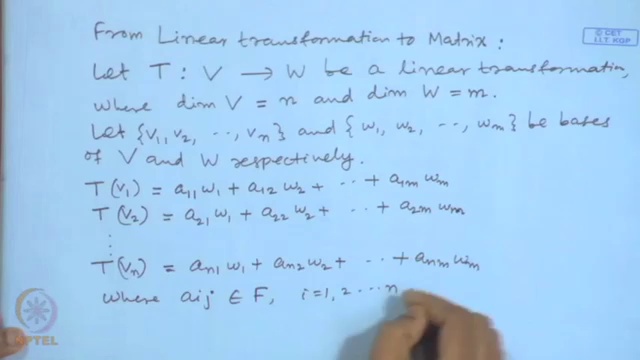 © CET
I.I.T. KGP
From Linear transformation to Matrix:
Let T : V → W be a linear transformation,
where dim V = n and dim W = m.
Let {v₁, v₂, .., vₙ} and {w₁, w₂, .., wₘ} be bases
of V and W respectively.
T(v₁) = a₁₁w₁ + a₁₂w₂ + .. + a₁ₘwₘ
T(v₂) = a₂₁w₁ + a₂₂w₂ + .. + a₂ₘwₘ
⋮
T(vₙ) = aₙ₁w₁ + aₙ₂w₂ + .. + aₙₘwₘ
where aij ∈ F, i=1, 2 ... n
NPTEL